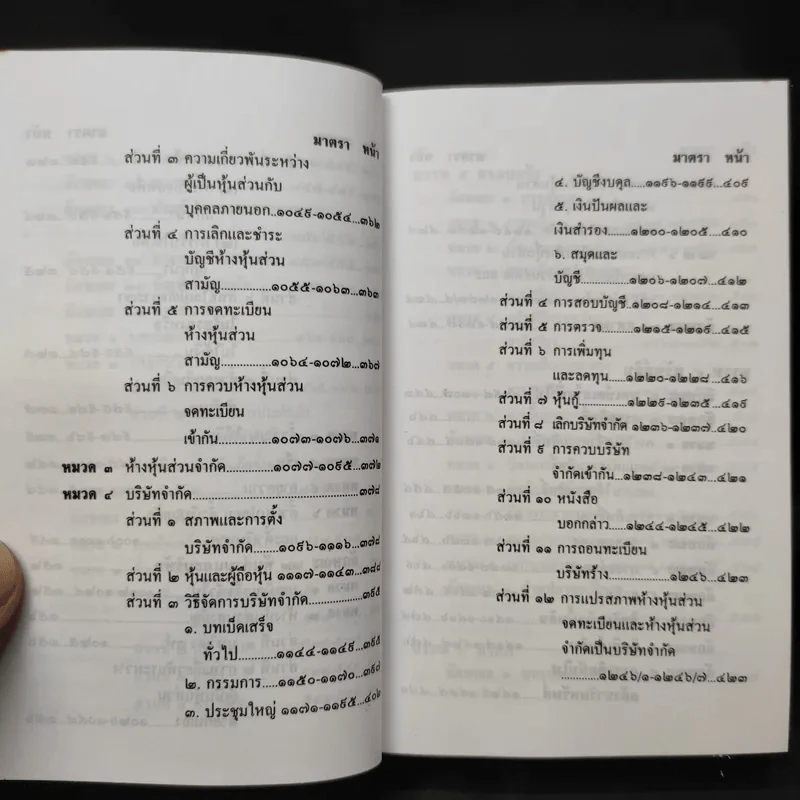 มาตรา หน้า
ส่วนที่ ๓ ความเกี่ยวพันระหว่าง
ผู้เป็นหุ้นส่วนกับ
บุคคลภายนอก..๑๐๔๙-๑๐๕๔...๓๖๒
ส่วนที่ ๔ การเลิกและชำระ
บัญชีห้างหุ้นส่วน
สามัญ............๑๐๕๕-๑๐๖๓...๓๖๓
ส่วนที่ ๕ การจดทะเบียน
ห้างหุ้นส่วน
สามัญ............๑๐๖๔-๑๐๗๒...๓๖๗
ส่วนที่ ๖ การควบห้างหุ้นส่วน
จดทะเบียน
เข้ากัน...........๑๐๗๓-๑๐๗๖...๓๗๑
หมวด ๓ ห้างหุ้นส่วนจำกัด........๑๐๗๗-๑๐๙๕...๓๗๒
หมวด ๔ บริษัทจำกัด.................................๓๗๘
ส่วนที่ ๑ สภาพและการตั้ง
บริษัทจำกัด....๑๐๙๖-๑๑๑๖...๓๗๘
ส่วนที่ ๒ หุ้นและผู้ถือหุ้น ๑๑๑๗-๑๑๔๓...๓๘๘
ส่วนที่ ๓ วิธีจัดการบริษัทจำกัด..............๓๙๕
๑. บทเบ็ดเสร็จ
ทั่วไป.......๑๑๔๔-๑๑๔๙...๓๙๕
๒. กรรมการ....๑๑๕๐-๑๑๗๐...๓๙๗
๓. ประชุมใหญ่ ๑๑๗๑-๑๑๙๕...๔๐๒
มาตรา หน้า
๔. บัญชีงบดุล.....๑๑๙๖-๑๑๙๙...๔๐๙
๕. เงินปันผลและ
เงินสำรอง....๑๒๐๐-๑๒๐๕...๔๑๐
๖. สมุดและ
บัญชี..........๑๒๐๖-๑๒๐๗...๔๑๒
ส่วนที่ ๔ การสอบบัญชี..๑๒๐๘-๑๒๑๔...๔๑๓
ส่วนที่ ๕ การตรวจ........๑๒๑๕-๑๒๑๙...๔๑๕
ส่วนที่ ๖ การเพิ่มทุน
และลดทุน.....๑๒๒๐-๑๒๒๘...๔๑๖
ส่วนที่ ๗ หุ้นกู้..............๑๒๒๙-๑๒๓๕...๔๑๙
ส่วนที่ ๘ เลิกบริษัทจำกัด ๑๒๓๖-๑๒๓๗...๔๒๐
ส่วนที่ ๙ การควบบริษัท
จำกัดเข้ากัน...๑๒๓๘-๑๒๔๓...๔๒๑
ส่วนที่ ๑๐ หนังสือ
บอกกล่าว....๑๒๔๔-๑๒๔๕...๔๒๒
ส่วนที่ ๑๑ การถอนทะเบียน
บริษัทร้าง..............๑๒๔๖....๔๒๓
ส่วนที่ ๑๒ การแปรสภาพห้างหุ้นส่วน
จดทะเบียนและห้างหุ้นส่วน
จำกัดเป็นบริษัทจำกัด
...........๑๒๔๖/๑-๑๒๔๖/๗...๔๒๓